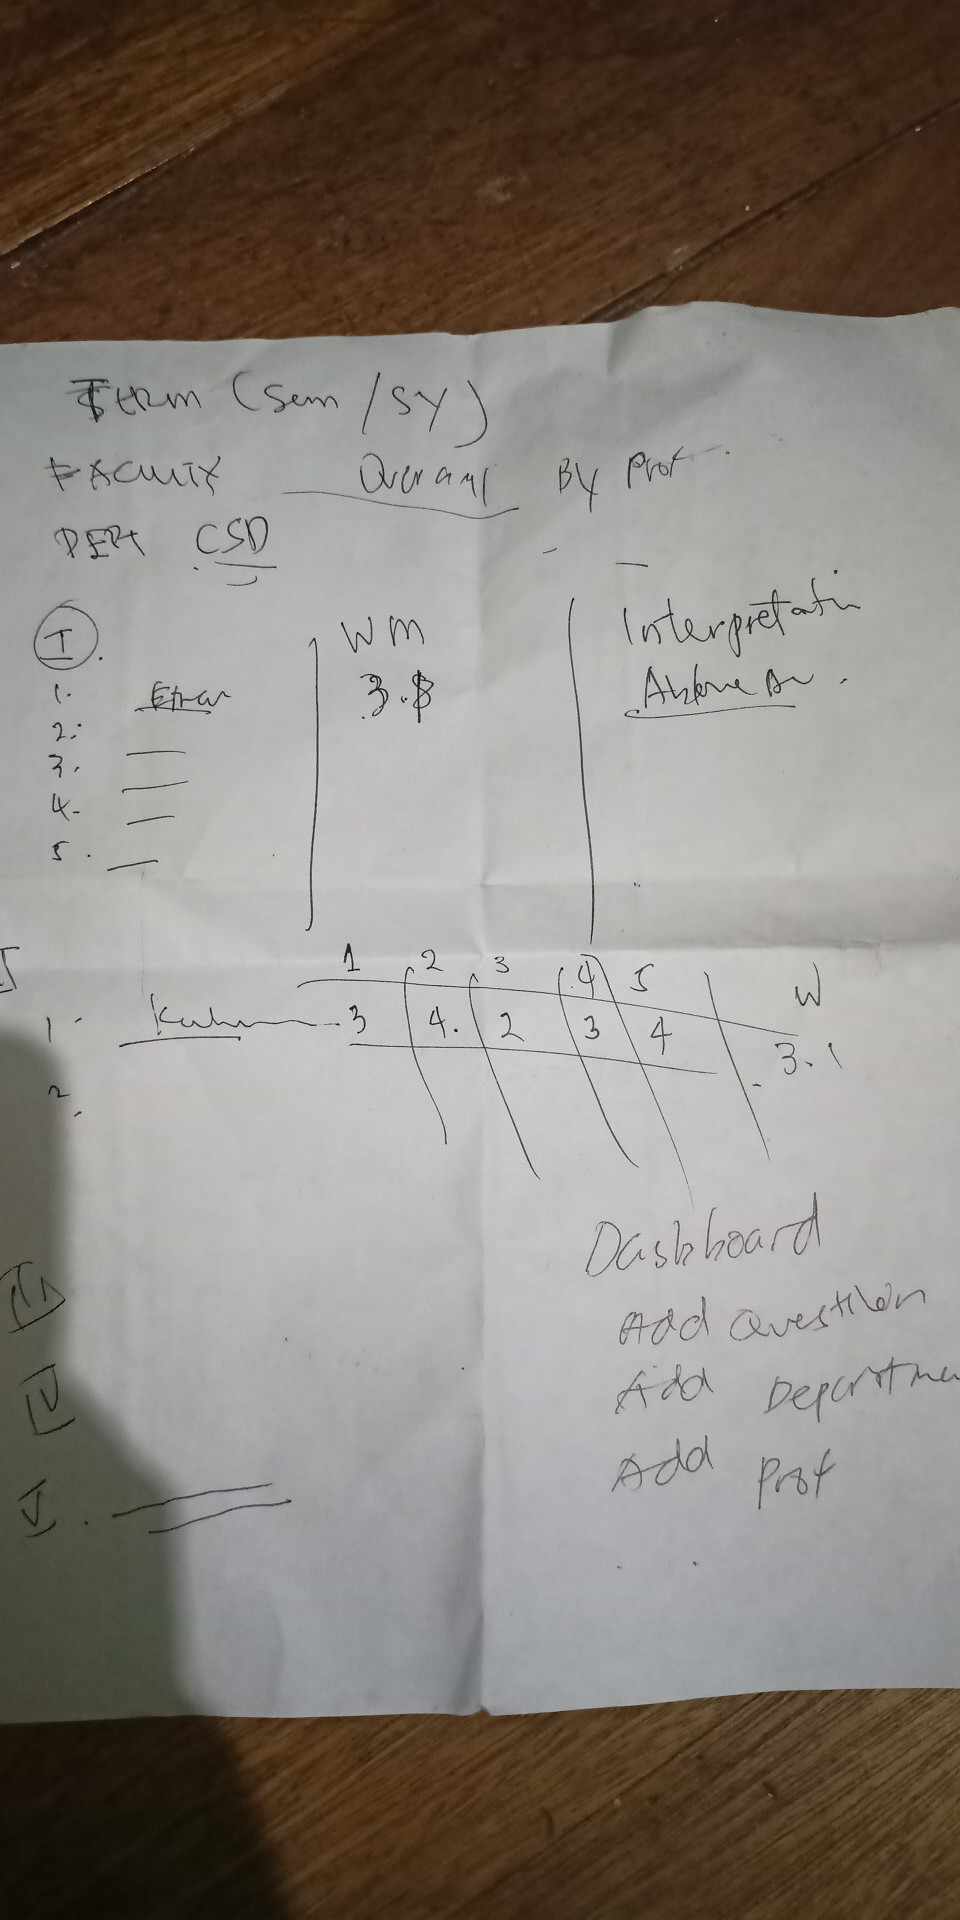 Term (Sem / SY)
FACULTY Overall By Prof
DEPT CSD
I. WM Interpretatin
1. 3.8 Above Av.
2.
3.
4.
5.
1 2 3 4 5 W
1. 3 4. 2 3 4 3.1
2.
Dashboard
III Add Question
IV Add Departme
V. Add Prof